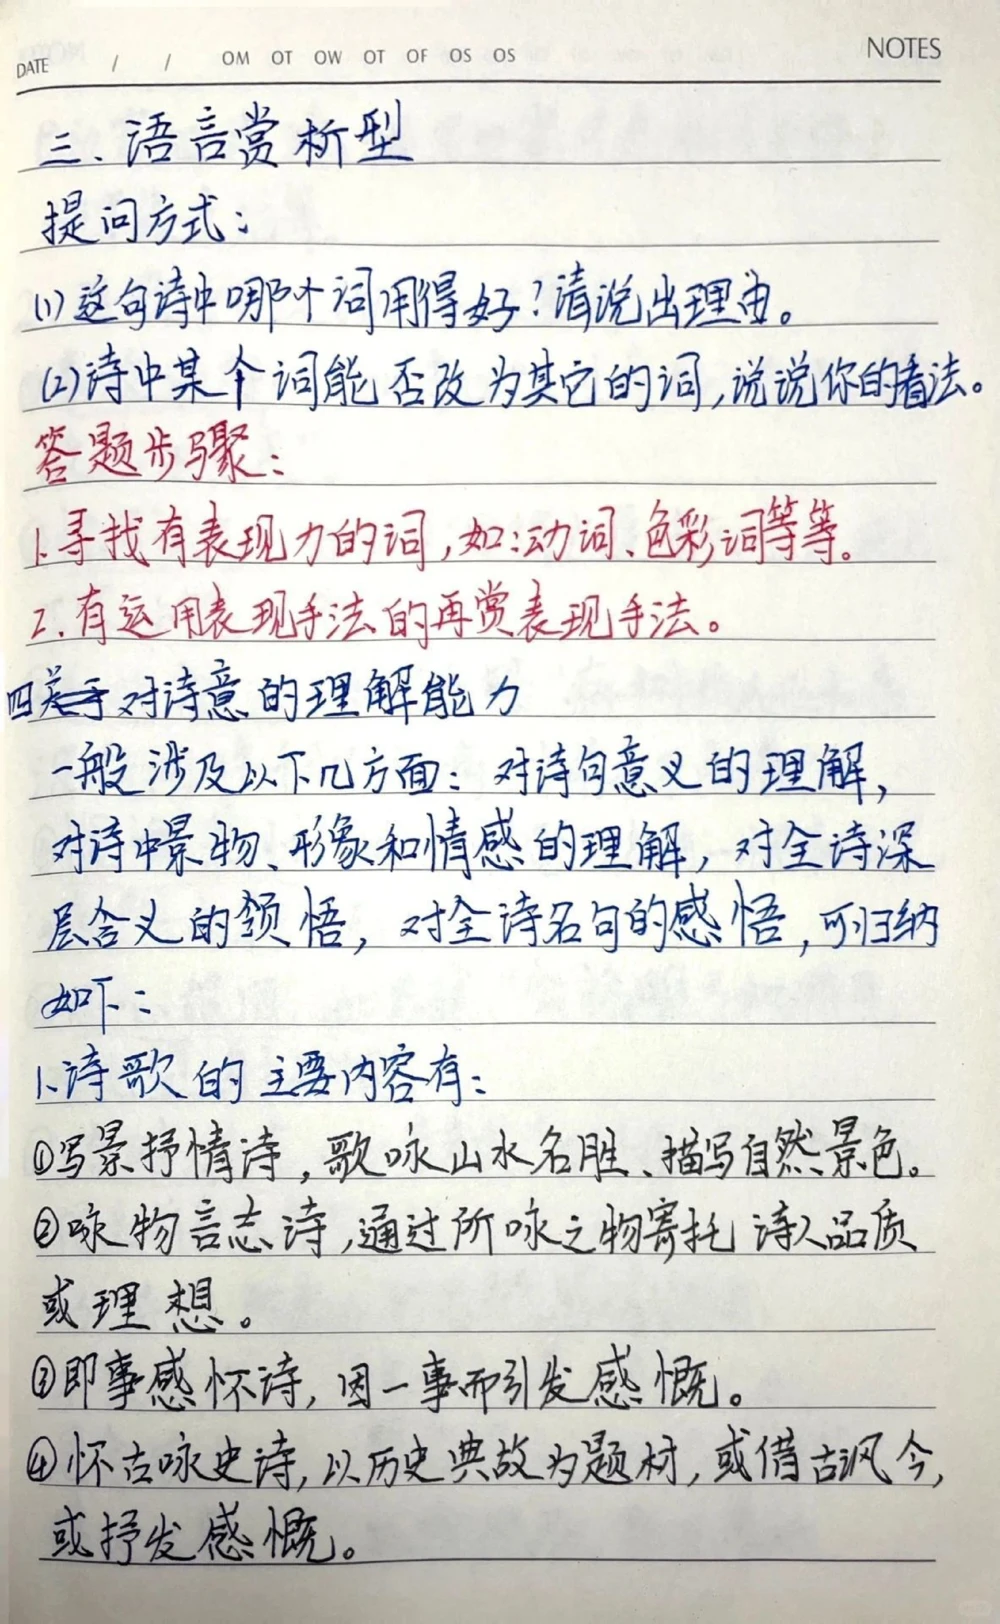 DATE / / OM OT OW OT OF OS OS NOTES
三、语言赏析型
提问方式：
(1)这句诗中哪个词用得好？请说出理由。
(2)诗中某个词能否改为其它的词，说说你的看法。
答题步骤：
1、寻找有表现力的词，如：动词、色彩词等等。
2、有运用表现手法的再赏表现手法。
四 对诗意的理解能力
一般涉及以下几方面：对诗句意义的理解，
对诗中景物、形象和情感的理解，对全诗深
层含义的领悟，对全诗名句的感悟，可归纳
如下：
1、诗歌的主要内容有：
①写景抒情诗，歌咏山水名胜、描写自然景色。
②咏物言志诗，通过所咏之物寄托诗人品质
或理想。
③即事感怀诗，因一事而引发感慨。
④怀古咏史诗，以历史典故为题材，或借古讽今，
或抒发感慨。